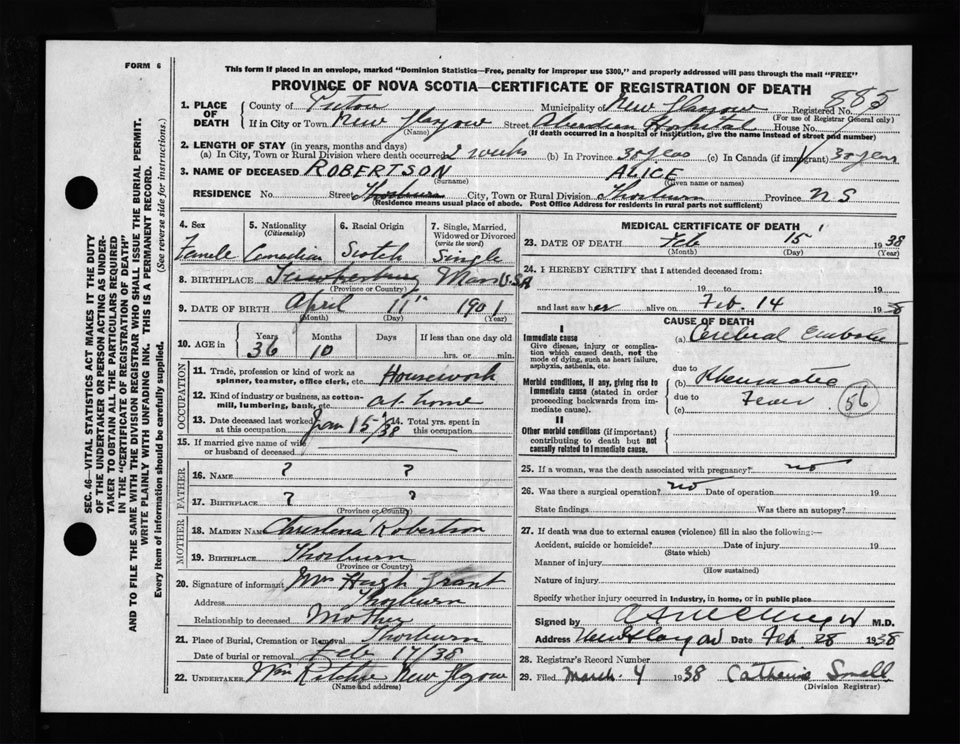 FORM 6
This form if placed in an envelope, marked "Dominion Statistics—Free, penalty for improper use $300," and properly addressed will pass through the mail "FREE"
PROVINCE OF NOVA SCOTIA—CERTIFICATE OF REGISTRATION OF DEATH
885
1. PLACE OF DEATH County of Pictou Municipality of New Glasgow Registered No.
(For use of Registrar General only)
If in City or Town New Glasgow Street Aberdeen Hospital House No.
(Name) (If death occurred in a hospital or institution, give the name instead of street and number)
2. LENGTH OF STAY (in years, months and days)
(a) In City, Town or Rural Division where death occurred 2 weeks (b) In Province 30 years (c) In Canada (if immigrant) 30 years
3. NAME OF DECEASED ROBERTSON ALICE
(Surname) (Given name or names)
RESIDENCE No. Street Thorburn City, Town or Rural Division Thorburn Province N S
(Residence means usual place of abode. Post Office Address for residents in rural parts not sufficient)
4. Sex 5. Nationality (Citizenship) 6. Racial Origin 7. Single, Married, Widowed or Divorced (write the word)
Female Canadian Scotch Single
8. BIRTHPLACE Mass U.S.A
(Province or Country)
9. DATE OF BIRTH April 11" 1901
(Month) (Day) (Year)
10. AGE in Years Months Days If less than one day old
36 10 hrs. or min.
OCCUPATION
11. Trade, profession or kind of work as spinner, teamster, office clerk, etc. Housework
12. Kind of industry or business, as cotton-mill, lumbering, bank, etc. at home
13. Date deceased last worked at this occupation Jan 15/38 14. Total yrs. spent in this occupation
15. If married give name of wife or husband of deceased
FATHER
16. NAME ? ?
17. BIRTHPLACE ? ?
(Province or Country)
MOTHER
18. MAIDEN NAME Christena Robertson
19. BIRTHPLACE Thorburn
(Province or Country)
20. Signature of informant Mrs Hugh Grant
Address Thorburn
Relationship to deceased Mother
21. Place of Burial, Cremation or Removal Thorburn
Date of burial or removal Feb 17/38
22. UNDERTAKER Wm Ritchie New Glasgow
(Name and address)
MEDICAL CERTIFICATE OF DEATH
23. DATE OF DEATH Feb 15 1938
(Month) (Day)
24. I HEREBY CERTIFY that I attended deceased from:
19 to 19
and last saw her alive on Feb. 14 1938
CAUSE OF DEATH
I
Immediate cause (a) Cerebral Embolus
Give disease, injury or complication which caused death, not the mode of dying, such as heart failure, asphyxia, asthenia, etc.
due to
Morbid conditions, if any, giving rise to immediate cause (stated in order proceeding backwards from immediate cause). (b) Rheumatic
due to Fever
(c) 56
II
Other morbid conditions (if important) contributing to death but not causally related to immediate cause.
25. If a woman, was the death associated with pregnancy? no
26. Was there a surgical operation? no Date of operation 19
State findings Was there an autopsy?
27. If death was due to external causes (violence) fill in also the following:—
Accident, suicide or homicide? Date of injury 19
(State which)
Manner of injury
(How sustained)
Nature of injury
Specify whether injury occurred in industry, in home, or in public place
Signed by M.D.
Address New Glasgow Date Feb. 28 1938
28. Registrar's Record Number
29. Filed March 4 1938 Catherine Small
(Division Registrar)
SEC. 46—VITAL STATISTICS ACT MAKES IT THE DUTY
OF THE UNDERTAKER OR PERSON ACTING AS UNDER-
TAKER TO OBTAIN ALL THE PARTICULARS REQUIRED
IN THE "CERTIFICATE OF REGISTRATION OF DEATH"
AND TO FILE THE SAME WITH THE DIVISION REGISTRAR WHO SHALL ISSUE THE BURIAL PERMIT.
WRITE PLAINLY WITH UNFADING INK. THIS IS A PERMANENT RECORD.
Every item of information should be carefully supplied. (See reverse side for instructions.)